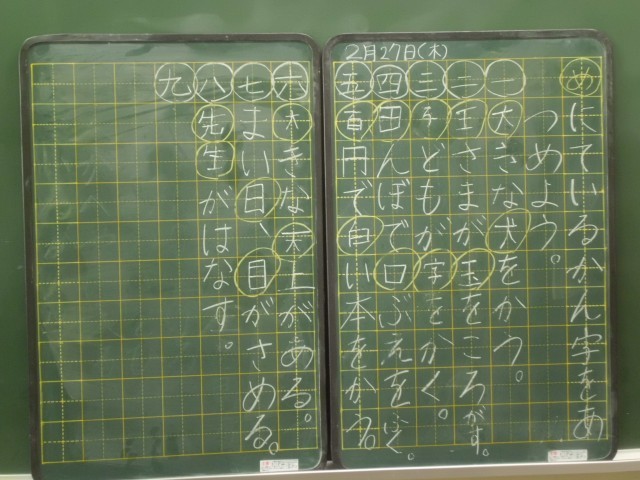 2月27日(木)
め にているかん字をあ
つめよう。
一 大きな犬をかう。
二 王さまが玉をころがす。
三 子どもが字をかく。
四 田んぼで口ぶえをふく。
五 百円で白い本をかう。
六 木きな木上がある。
七 まい日、目がさめる。
八 先生がはなす。
九